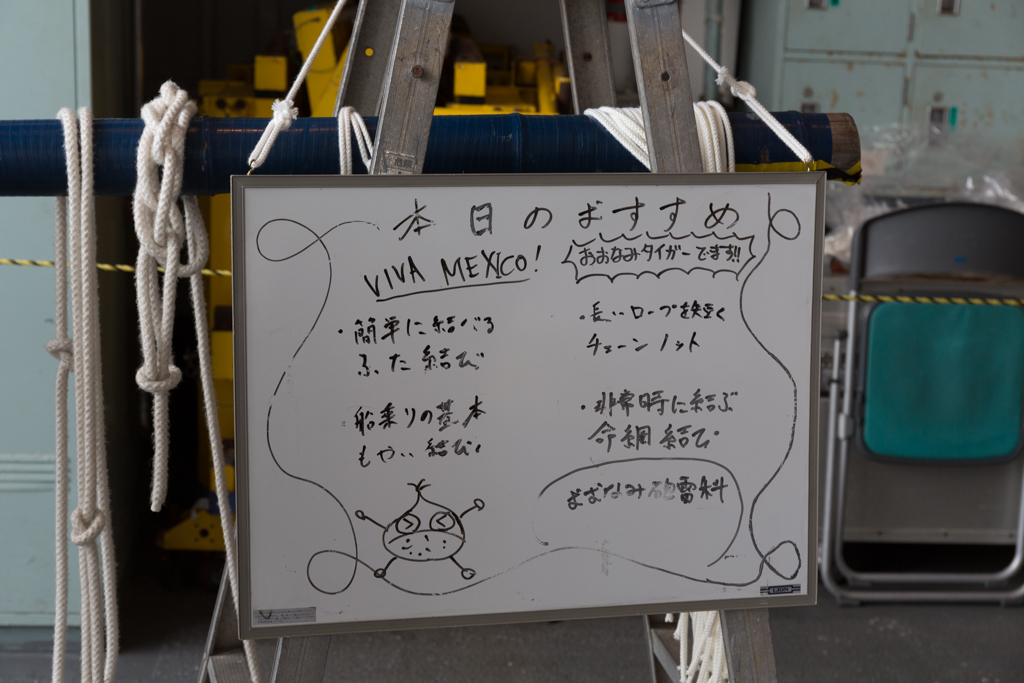 本日のおすすめ
VIVA MEXICO!
おおなみタイガーでます!!
・簡単に結べる
ふた結び
船乗りの基本
もやい結び
・長いロープを短く
チェーンノット
・非常時に結ぶ
命綱結び
おおなみ砲雷科
LION